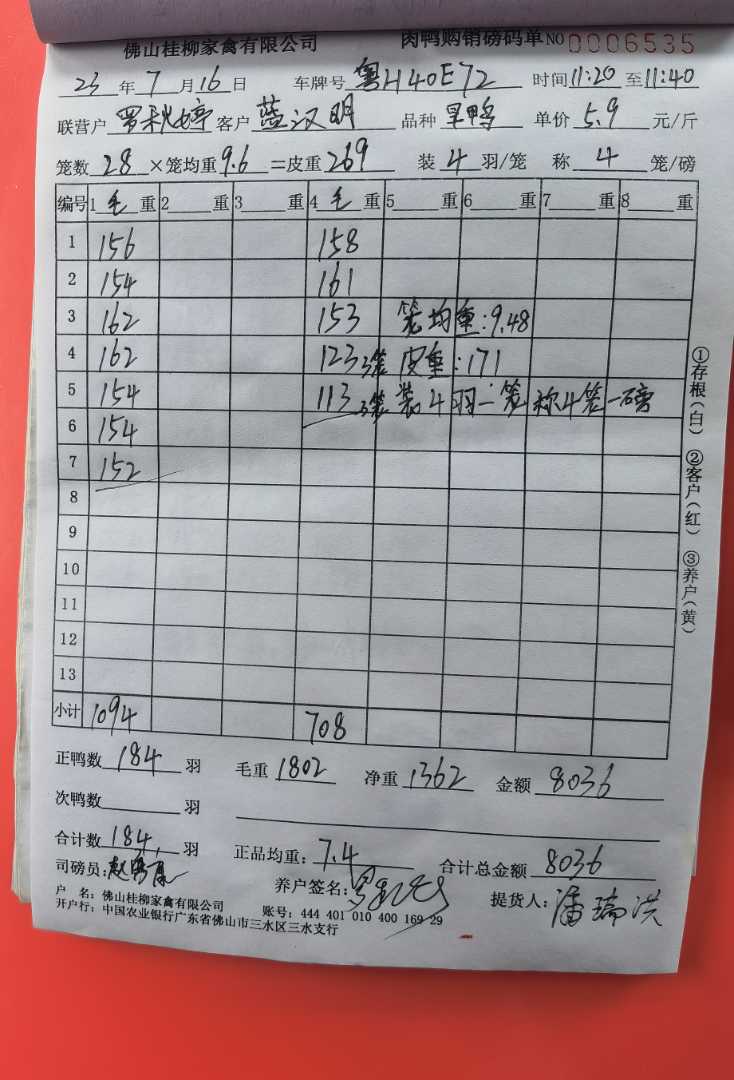 佛山桂柳家禽有限公司 肉鸭购销磅码单 NO 0006535
23年7月16日 车牌号 粤H40E72 时间11:20至11:40
联营户 罗秋婷 客户 蓝汉明 品种 旱鸭 单价 5.9 元/斤
笼数 28 ×笼均重 9.6 =皮重 269 装 4 羽/笼 称 4 笼/磅
编号 1 毛 重 2 重 3 重 4 毛 重 5 重 6 重 7 重 8 重
1 156 158
2 154 161
3 162 153 笼均重:9.48
4 162 123 3笼 皮重:171
5 154 113 3笼 装4羽一笼 称4笼一磅
6 154
7 152
8
9
10
11
12
13
小计 1094 708
正鸭数 184 羽 毛重 1802 净重 1362 金额 8036
次鸭数 羽
合计数 184 羽 正品均重: 7.4 合计总金额 8036
司磅员: 养户签名: 提货人: 潘瑞洪
户 名: 佛山桂柳家禽有限公司 账号: 444 401 010 400 169 29
开户行: 中国农业银行广东省佛山市三水区三水支行
①存根(白) ②客户(红) ③养户(黄)